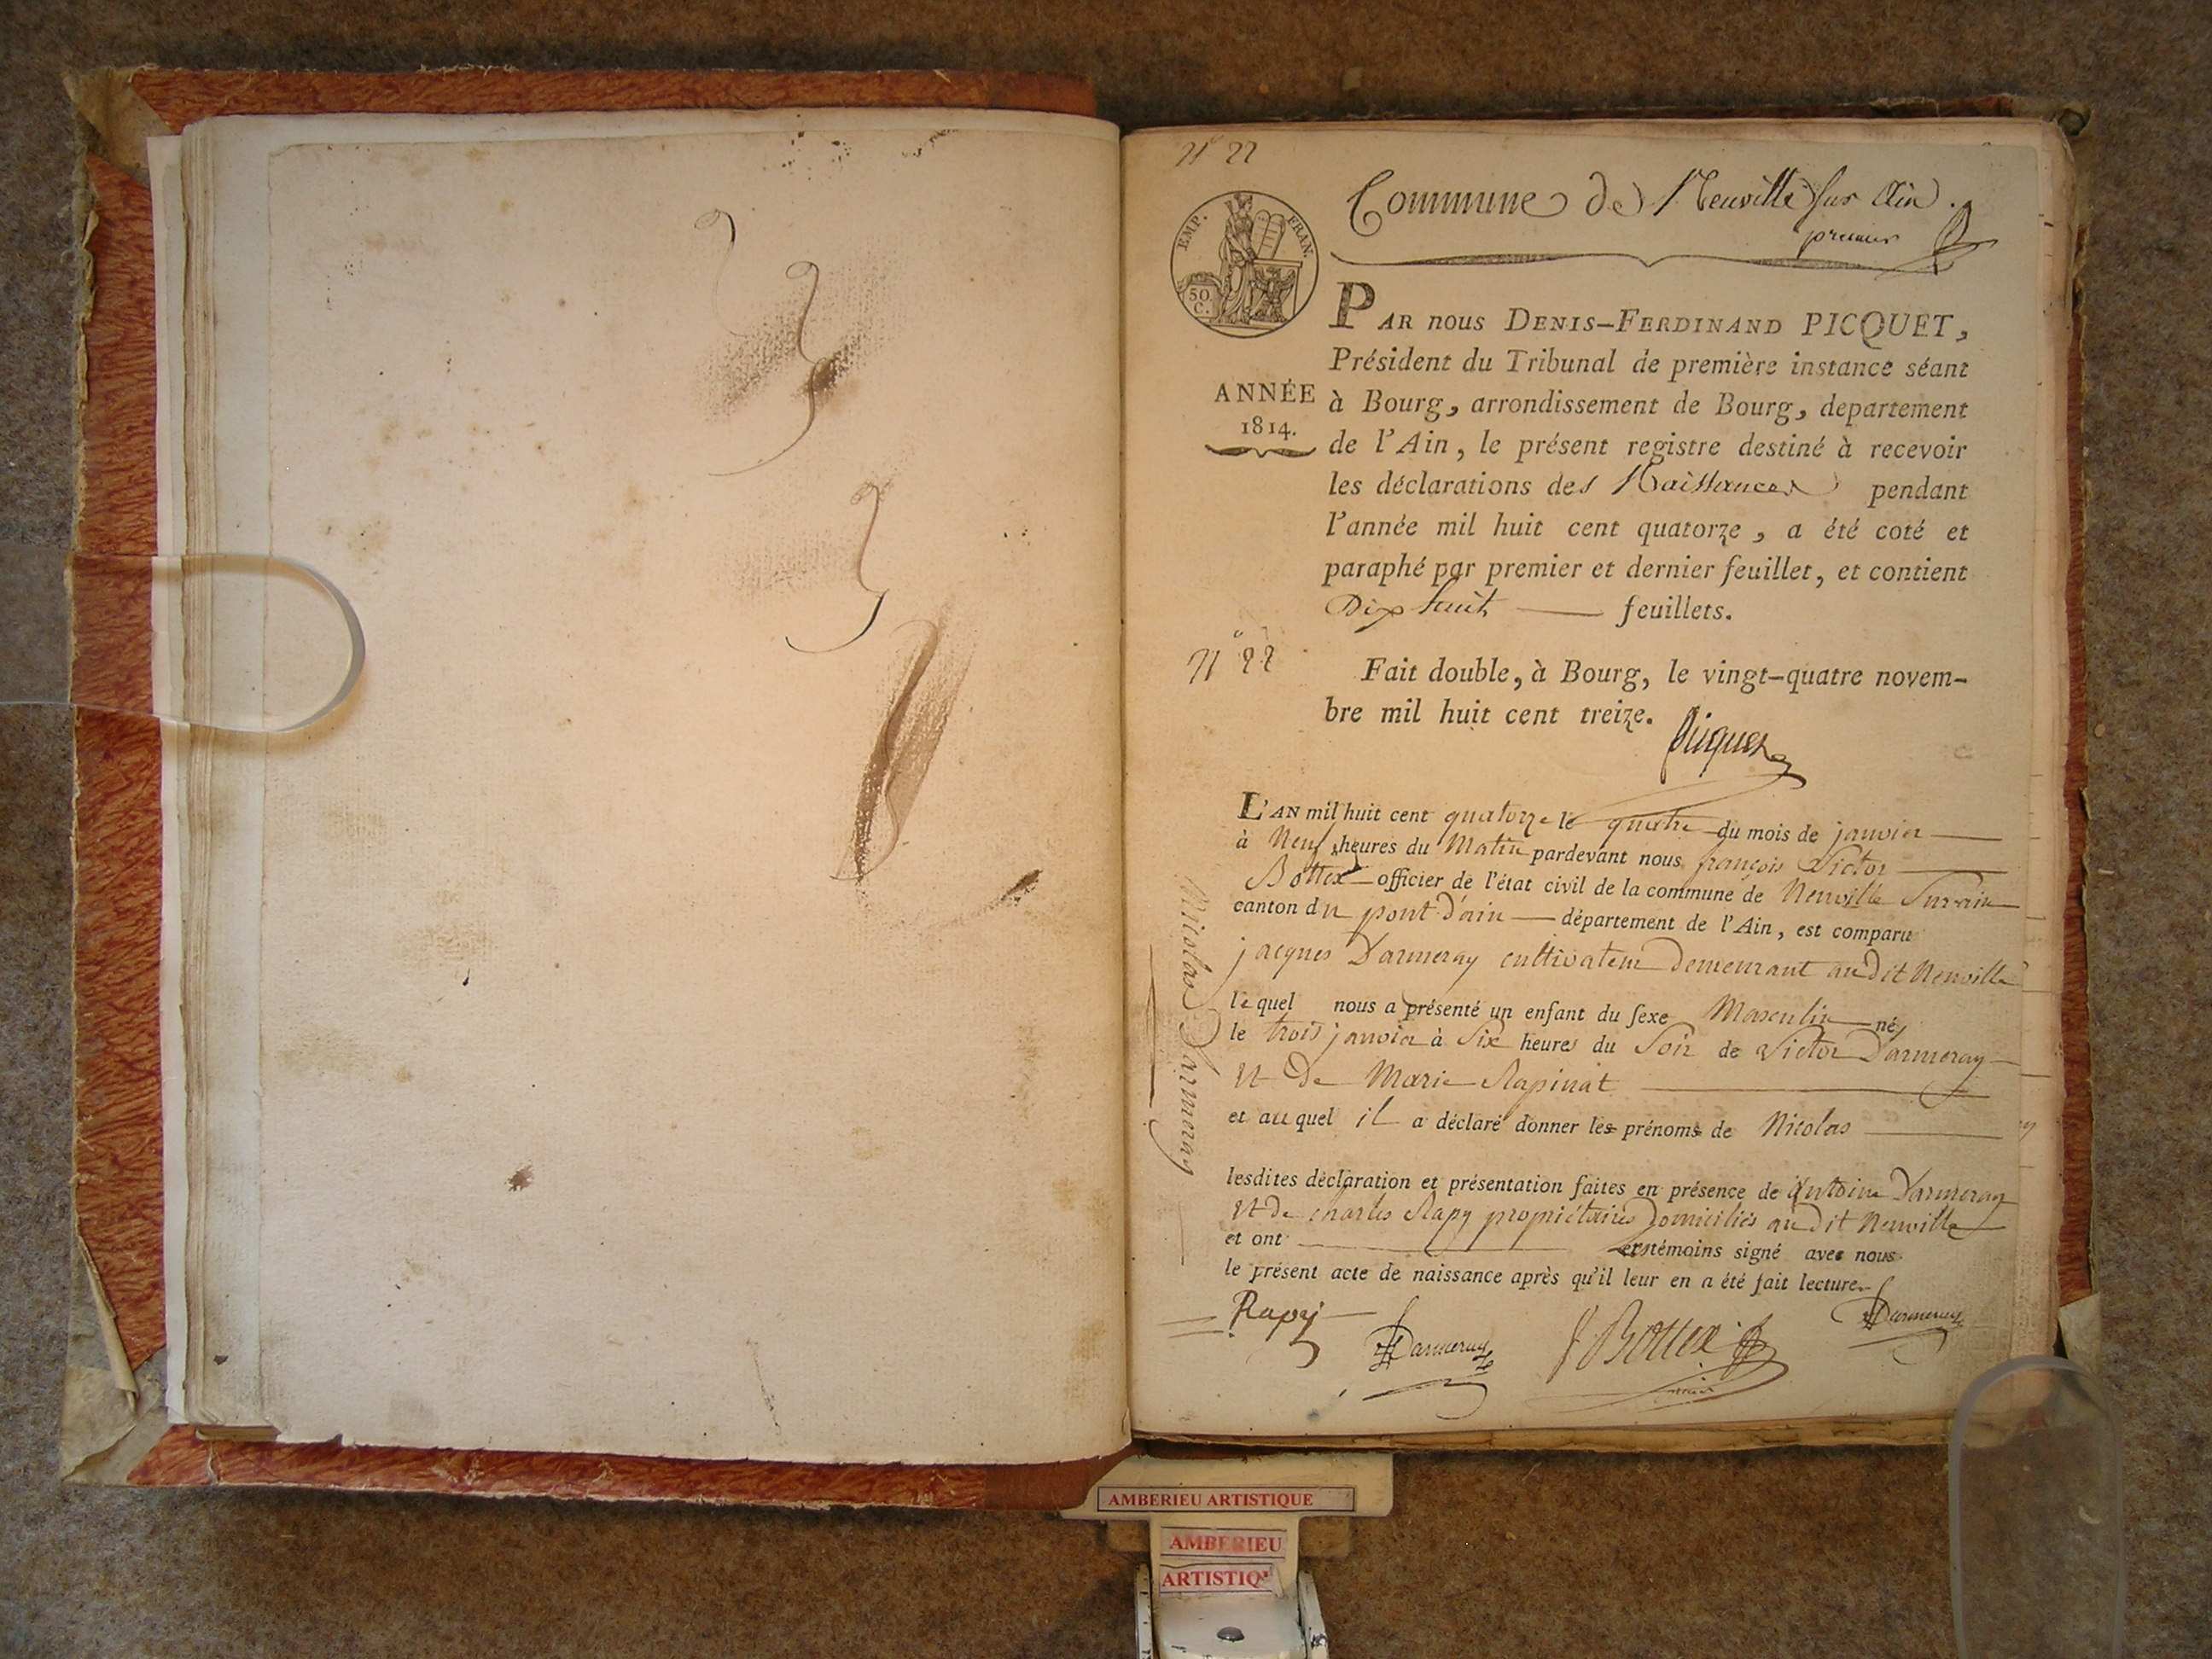 N° 22
Commune de Neuville sur Ain.
premier
EMP. FRAN.
50 C.
PAR nous DENIS-FERDINAND PICQUET,
Président du Tribunal de première instance séant
ANNÉE
1814.
à Bourg, arrondissement de Bourg, departement
de l'Ain, le présent registre destiné à recevoir
les déclarations des Naissances pendant
l'année mil huit cent quatorze, a été coté et
paraphé par premier et dernier feuillet, et contient
Dix huit feuillets.
N° 22
Fait double, à Bourg, le vingt-quatre novem-
bre mil huit cent treize.
Picquet
L'AN mil huit cent quatorze le quatre du mois de janvier
à Neuf heures du Matin pardevant nous françois Victor
Bottex officier de l'état civil de la commune de Neuville Surain
canton du pont d'ain département de l'Ain, est comparu
jacques Darmeray cultivateur demeurant audit Neuville
lequel nous a présenté un enfant du sexe Masculin né
le trois janvier à Six heures du Soir de Victor Darmeray
Et De Marie Rapinat
et auquel il a déclaré donner les prénoms de Nicolas
Nicolas Darmeray
lesdites déclaration et présentation faites en présence de Antoine Darmeray
Et de charles Rapy propriétaires Domiciliés audit Neuville
et ont témoins signé avec nous
le présent acte de naissance après qu'il leur en a été fait lecture.
Rapy
Darmeray
Bottex
Darmeray
AMBERIEU ARTISTIQUE
AMBERIEU
ARTISTIQ